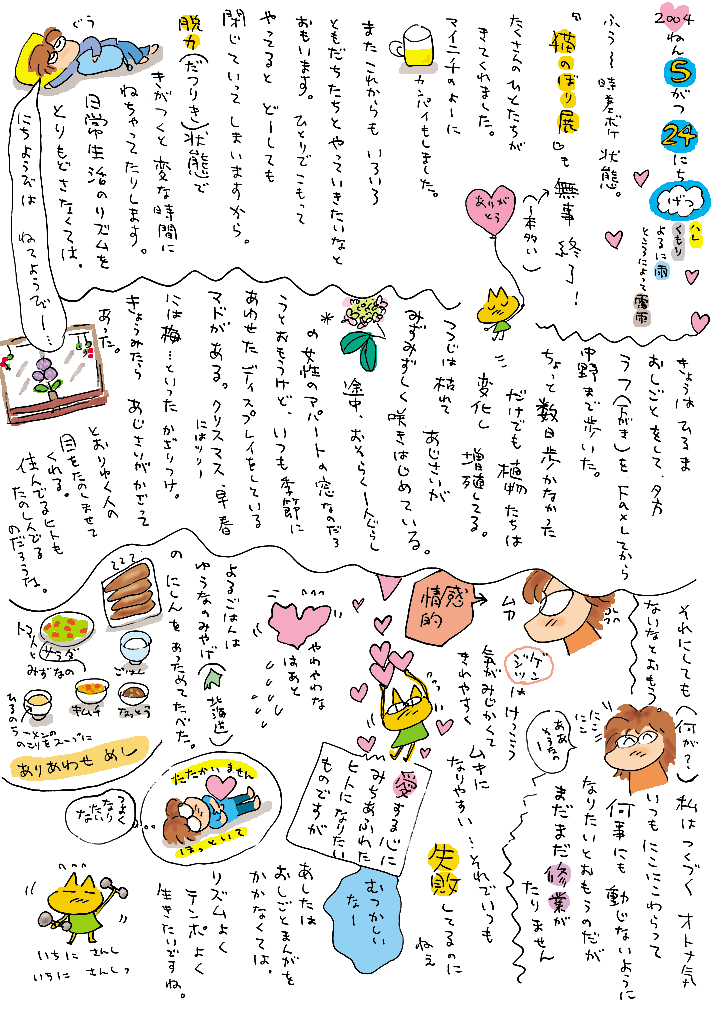 2004ねん5がつ24にち
げつ
ハレ
くもり
よるに雨
ところによって雷雨
ふぅ〜時差ボケ状態。
『猫のぼり展』も無事終了!
(一本多い)
ありがとう
たくさんのひとたちが
きてくれました。
マイニチのよーに
カンパイもしました。
またこれからもいろいろ
ともだちたちとやっていきたいなと
おもいます。ひとりでこもって
やってるとどーしても
閉じていってしまいますから。
脱力(だつりき)状態で
きがつくと変な時間に
ねちゃってたりします。
日常生活のリズムを
とりもどさなくては。
ぐう
にちようびはねてようびー…
きょうはひるま
おしごとをして、夕方
ラフ(下がき)をFaxしてから
中野まで歩いた。
ちょっと数日歩かなかった
だけでも植物たちは
変化し増殖してる。
つつじは枯れてあじさいが
みずみずしく咲きはじめている。
途中、おそらく一人ぐらし
*の女性のアパートの窓なのだろ
うとおもうけど、いつも季節に
あわせたディスプレイをしている
マドがある。クリスマス、早春
にはツリー
には梅…といったかざりつけ。
きょうみたらあじさいがかざって
あった。
とおりゆく人の
目をたのしませて
くれる。
住んでるヒトも
たのしんでる
のだろうな。
それにしても(何が?)私はつくづくオトナ気
ないなとおもう。
いつもにこにこわらって
何事にも動じないように
なりたいとおもうのだが
まだまだ修業が
たりません
ああ
そうなのー
にこ
にこ
ムカ
ゲンジツはけっこう
気がみじかくて
きれやすくムキに
なりやすい…それでいつも
失敗してるのに
ねえ
感情的
愛する心に
みちあふれた
ヒトになりたい
ものですが
むつかしい
なー
やわやわな
はあと
よるごはんは
ゆうなのみやげ(北海道)
のにしんをあっためてたべた。
トマトと
みずなの
サラダ
ごはん
なっとう
キムチ
ひるのラーメンの
のこりをスープに
ありあわせめし
たたかいません
ほっといて
つよく
なりたい
あしたは
おしごとまんがを
かかなくては。
リズムよく
テンポよく
生きたいですね。
いちにさんし
いちにさんしっ